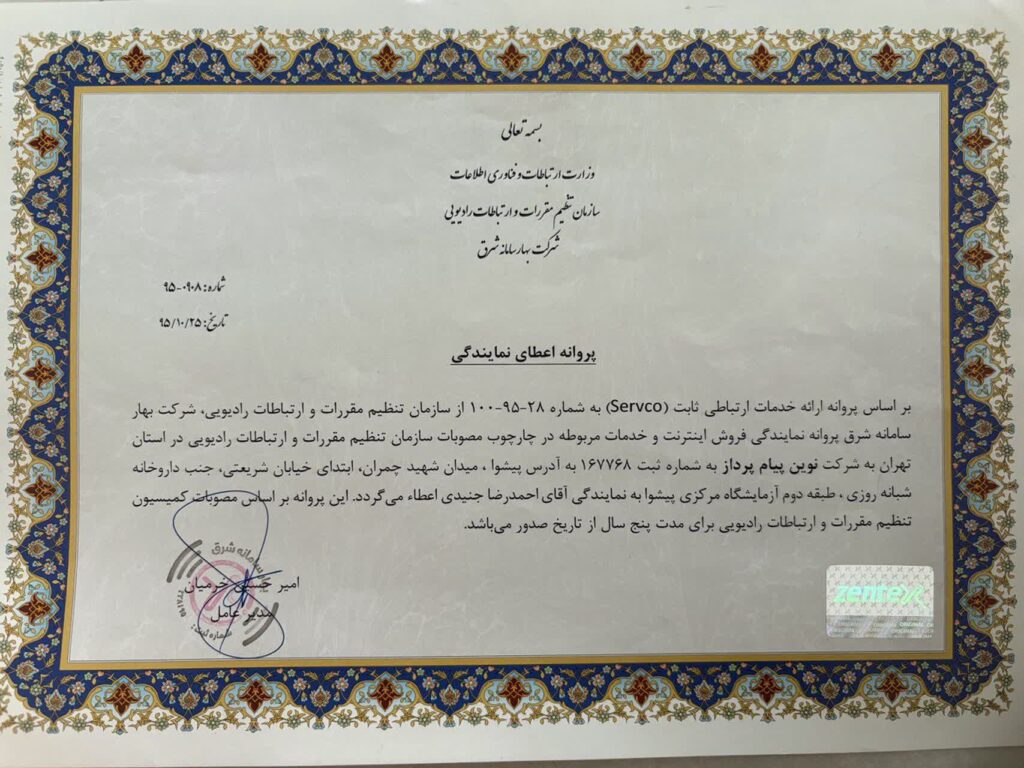 بسمه تعالی
وزارت ارتباطات و فناوری اطلاعات
سازمان تنظیم مقررات و ارتباطات رادیویی
شرکت بهار سامانه شرق
شماره: ۹۵-۰۹۰۸
تاریخ: ۹۵/۱۰/۲۵
پروانه اعطای نمایندگی
بر اساس پروانه ارائه خدمات ارتباطی ثابت (Servco) به شماره ۲۸-۹۵-۱۰۰ از سازمان تنظیم مقررات و ارتباطات رادیویی، شرکت بهار
سامانه شرق پروانه نمایندگی فروش اینترنت و خدمات مربوطه در چارچوب مصوبات سازمان تنظیم مقررات و ارتباطات رادیویی در استان
تهران به شرکت نوین پیام پرداز به شماره ثبت ۱۶۷۷۶۸ به آدرس پیشوا ، میدان شهید چمران، ابتدای خیابان شریعتی، جنب داروخانه
شبانه روزی ، طبقه دوم آزمایشگاه مرکزی پیشوا به نمایندگی آقای احمدرضا جنیدی اعطاء می‌گردد. این پروانه بر اساس مصوبات کمیسیون
تنظیم مقررات و ارتباطات رادیویی برای مدت پنج سال از تاریخ صدور می‌باشد.
سامانه شرق
امیر حسین خرمیان
مدیر عامل
شماره ثبت:
zentex
ORIGINAL